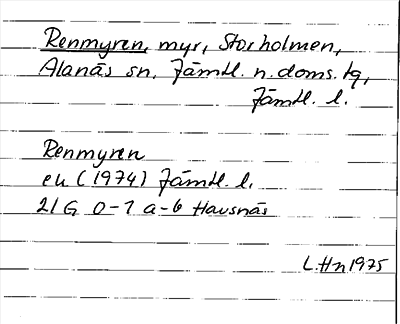 Renmyren, myr, Storholmen,
Alanäs sn, Jämtl. n. doms. tg,
Jämtl. l.
Renmyren
ek (1974) Jämtl. l.
21 G 0-1 a-b Havsnäs
L. Hn 1975